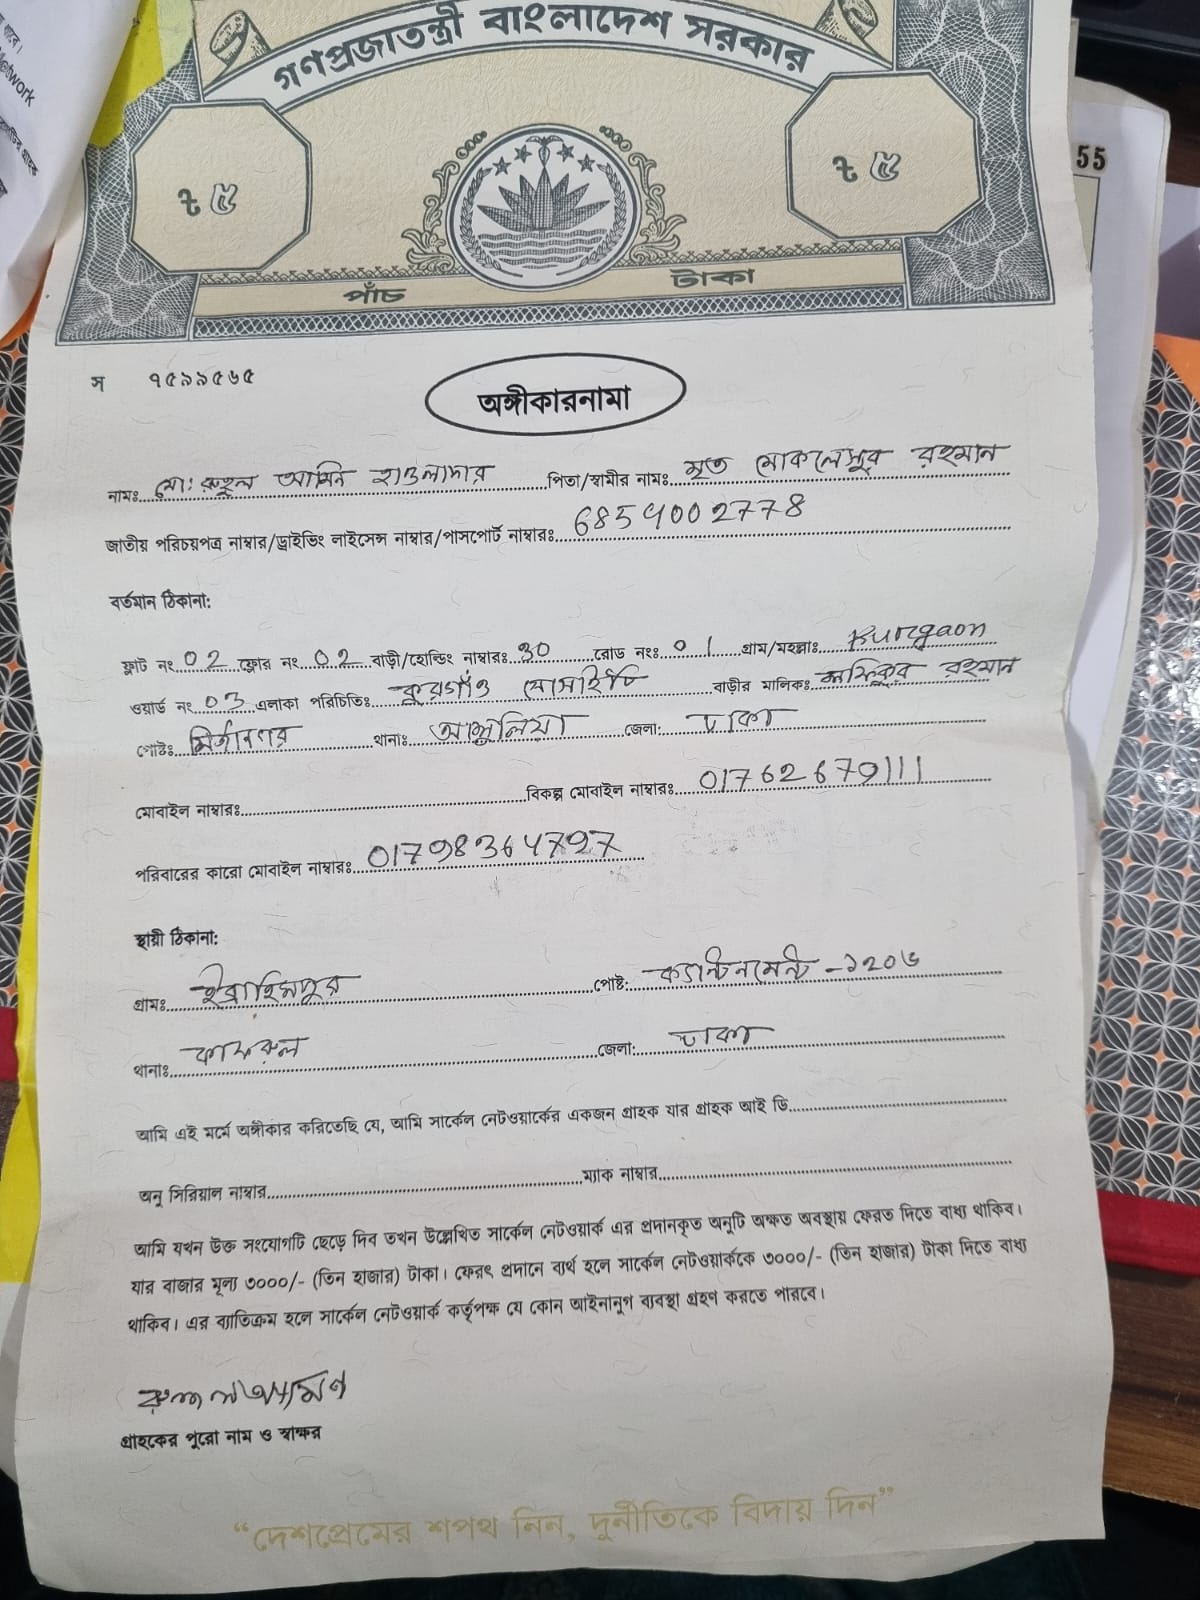 গণপ্রজাতন্ত্রী বাংলাদেশ সরকার
৳ ৫
৳ ৫
পাঁচ টাকা
55
work
স ৭৫৯৯৫৬৫
অঙ্গীকারনামা
নামঃ মোঃ রুহুল আমিন হাওলাদার পিতা/স্বামীর নামঃ মৃত মোকলেসুর রহমান
জাতীয় পরিচয়পত্র নাম্বার/ড্রাইভিং লাইসেন্স নাম্বার/পাসপোর্ট নাম্বারঃ 6859002778
বর্তমান ঠিকানা:
ফ্লাট নং 02 ফ্লোর নং 02 বাড়ী/হোল্ডিং নাম্বারঃ 30 রোড নংঃ 01 গ্রাম/মহল্লাঃ Kurgaon
ওয়ার্ড নং 03 এলাকা পরিচিতিঃ কুরগাঁও সোসাইটি বাড়ীর মালিকঃ রহমান
পোষ্টঃ মির্জানগর থানাঃ আশুলিয়া জেলা: ঢাকা
মোবাইল নাম্বারঃ বিকল্প মোবাইল নাম্বারঃ 01762679111
পরিবারের কারো মোবাইল নাম্বারঃ 01798364797
স্থায়ী ঠিকানা:
গ্রামঃ ইব্রাহিমপুর পোষ্ট: ক্যান্টনমেন্ট -১২০৬
থানাঃ কাফরুল জেলা: ঢাকা
আমি এই মর্মে অঙ্গীকার করিতেছি যে, আমি সার্কেল নেটওয়ার্কের একজন গ্রাহক যার গ্রাহক আই ডি
অনু সিরিয়াল নাম্বার ম্যাক নাম্বার
আমি যখন উক্ত সংযোগটি ছেড়ে দিব তখন উল্লেখিত সার্কেল নেটওয়ার্ক এর প্রদানকৃত অনুটি অক্ষত অবস্থায় ফেরত দিতে বাধ্য থাকিব।
যার বাজার মূল্য ৩০০০/- (তিন হাজার) টাকা। ফেরৎ প্রদানে ব্যর্থ হলে সার্কেল নেটওয়ার্ককে ৩০০০/- (তিন হাজার) টাকা দিতে বাধ্য
থাকিব। এর ব্যাতিক্রম হলে সার্কেল নেটওয়ার্ক কর্তৃপক্ষ যে কোন আইনানুগ ব্যবস্থা গ্রহণ করতে পারবে।
গ্রাহকের পুরো নাম ও স্বাক্ষর
“দেশপ্রেমের শপথ নিন, দুর্নীতিকে বিদায় দিন”